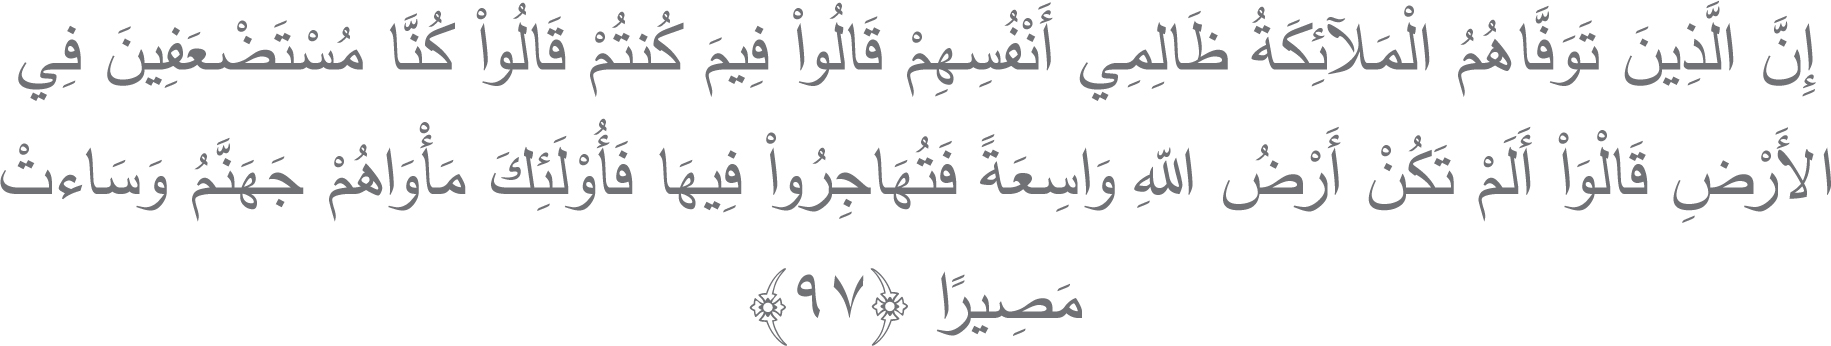 إِنَّ الَّذِينَ تَوَفَّاهُمُ الْمَلآئِكَةُ ظَالِمِي أَنْفُسِهِمْ قَالُواْ فِيمَ كُنتُمْ قَالُواْ كُنَّا مُسْتَضْعَفِينَ فِي
الأَرْضِ قَالْوَاْ أَلَمْ تَكُنْ أَرْضُ اللّهِ وَاسِعَةً فَتُهَاجِرُواْ فِيهَا فَأُوْلَئِكَ مَأْوَاهُمْ جَهَنَّمُ وَسَاءتْ
مَصِيرًا ﴿٩٧﴾